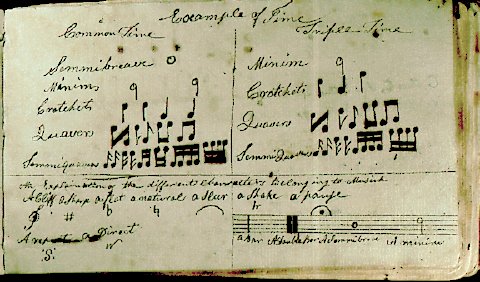 Example of Time
Common Time
Semmibreave
Minims
Crotchets
Quavers
Semmiquavers
Triple Time
Minim
Crotchets
Quavers
Semmiquavers
An Explanation of the different Characters belonging to Musick
A Cliff a sharp a flat a natural a Slur a Shake a pause
tr
A repeat a Direct
:S:
a Bar A double bar A Semmibreve A minim